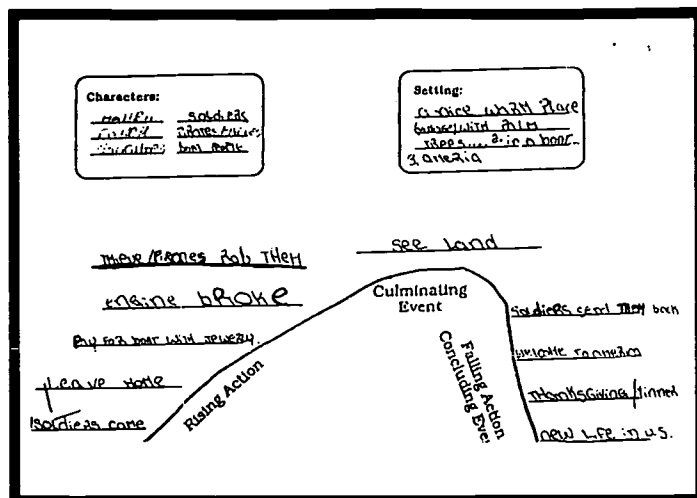 Characters:
soldiers
boat people
Setting:
a nice warm Place
with palm
trees.... 2. in a boat
3. america
see land
thieve/Pirates rob THEM
engine broke
Pay for boat with Jewelry.
Leave Home
soldiers come
Rising Action
Culminating
Event
Falling Action
Concluding Eve
soldiers send THEM back
welcome to america
THANKSGiving/dinner
new Life in U.S.